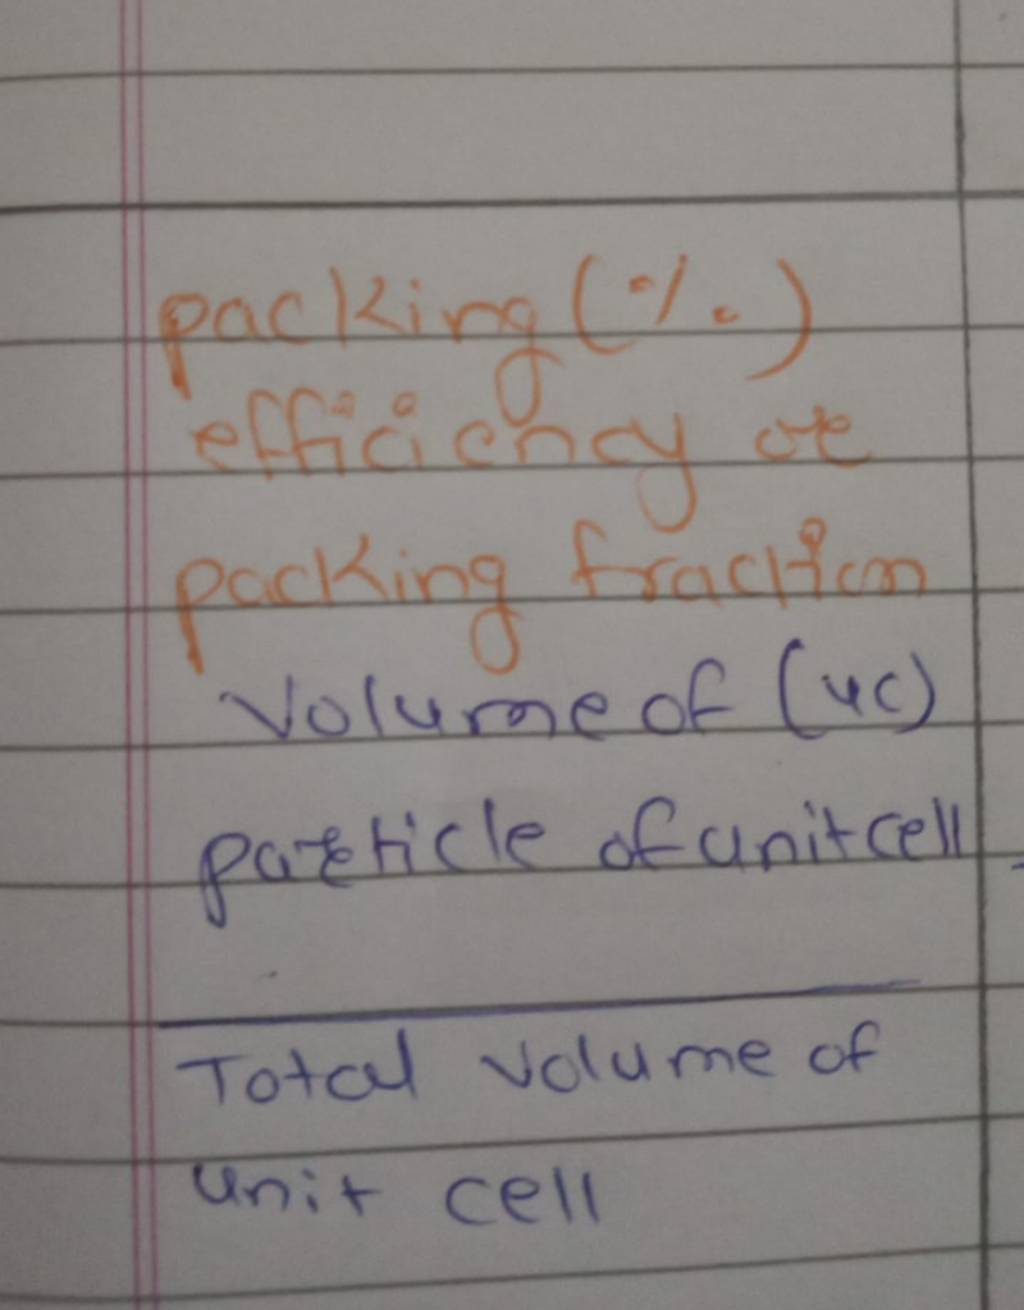 packing (%)
efficiency or
packing fraction
Volume of (uc)
particle of unit cell
Total volume of
unit cell